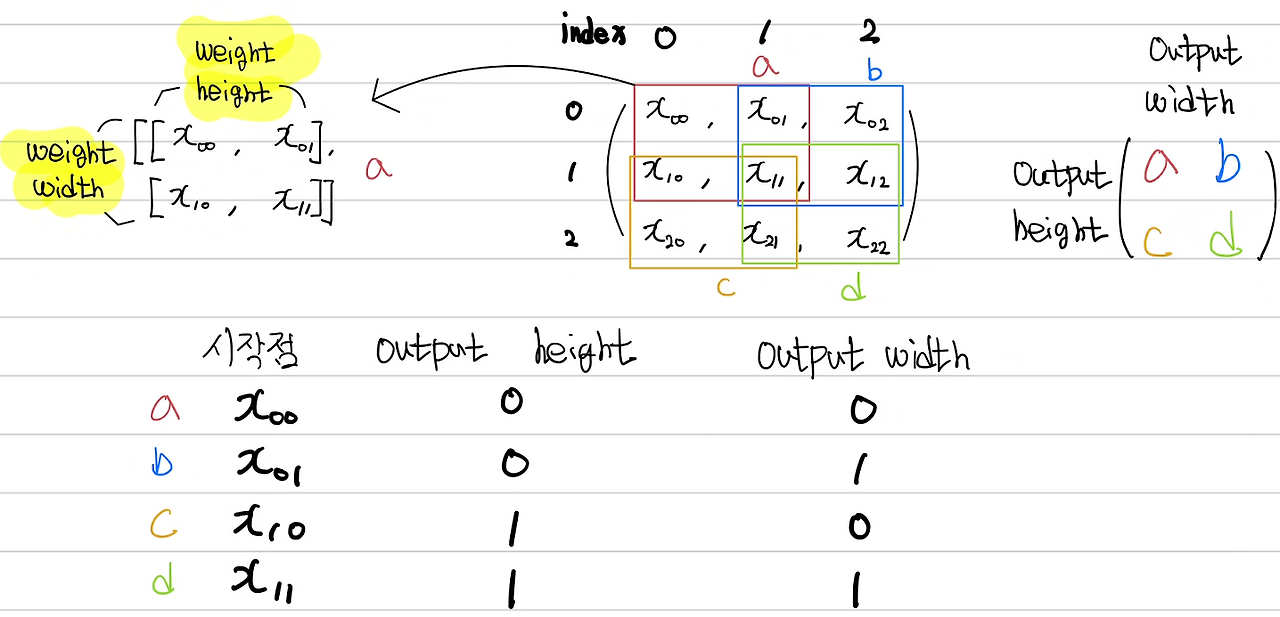 index 0 1 2
a b
weight
height
weight
width
[[x₀₀, x₀₁],
[x₁₀, x₁₁]]
a
0 x₀₀, x₀₁, x₀₂
1 x₁₀, x₁₁, x₁₂
2 x₂₀, x₂₁, x₂₂
c d
Output
width
Output
height
a b
c d
시작점 output height output width
a x₀₀ 0 0
b x₀₁ 0 1
c x₁₀ 1 0
d x₁₁ 1 1